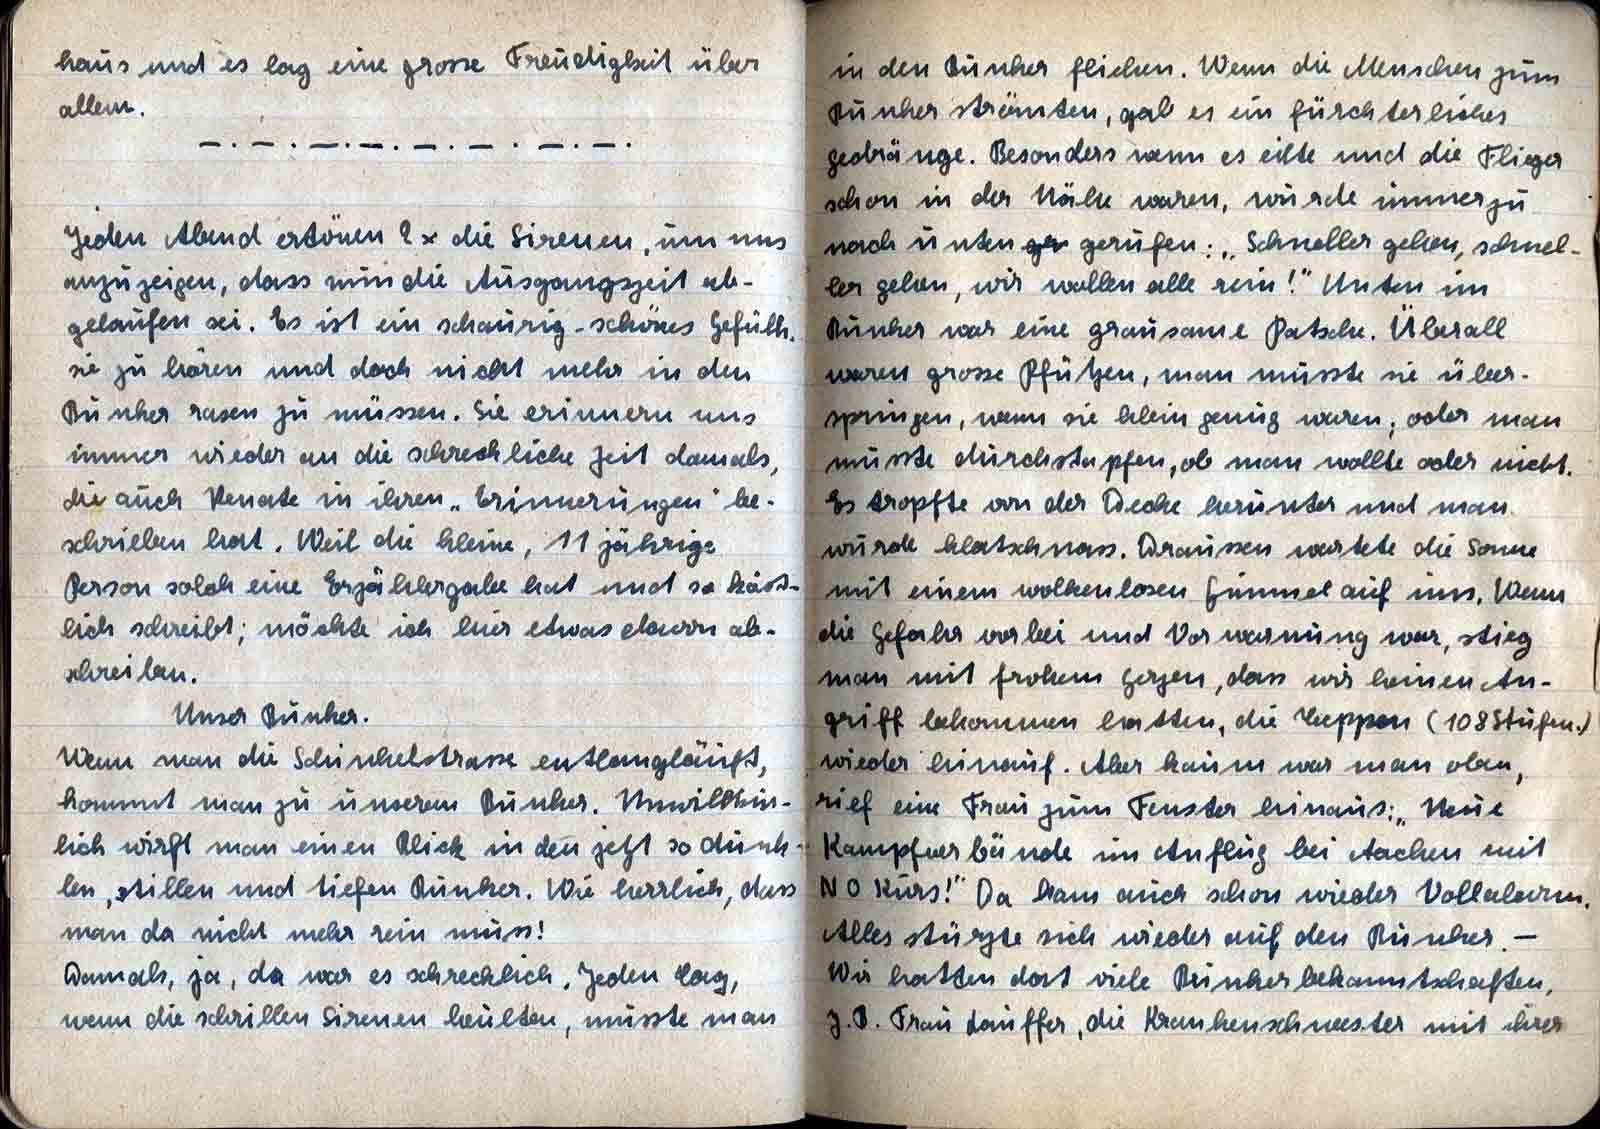 haus und es lag eine grosse Freudigkeit über
allem.
— . — . — . — . — . — . — . — .
Jeden Abend ertönen 2 x die Sirenen, um uns
anzuzeigen, dass nun die Ausgangszeit ab-
gelaufen sei. Es ist ein schaurig-schönes Gefühl,
sie zu hören und doch nicht mehr in den
Bunker rasen zu müssen. Sie erinnern uns
immer wieder an die schreckliche Zeit damals,
die auch Renate in ihren „Erinnerungen" be-
schrieben hat. Weil die kleine, 11 jährige
Person solch eine Erzählergabe hat und so köst-
lich schreibt; möchte ich hier etwas davon ab-
schreiben.
Unser Bunker.
Wenn man die Schinkelstrasse entlangläuft,
kommt man zu unserem Bunker. Unwillkür-
lich wirft man einen Blick in den jetzt so dunk-
len, stillen und tiefen Bunker. Wie herrlich, dass
man da nicht mehr rein muss!
Damals, ja, da war es schrecklich. Jeden Tag,
wenn die schrillen Sirenen heulten, musste man
in den Bunker fliehen. Wenn die Menschen zum
Bunker strömten, gab es ein fürchterliches
gedränge. Besonders wenn es eilte und die Flieger
schon in der Nähe waren, wurde immerzu
nach unten gerufen: „Schneller gehen, schnel-
ler gehen, wir wollen alle rein!" Unten im
Bunker war eine grausame Patsche. Überall
waren grosse Pfützen, man musste sie über-
springen, wenn sie klein genug waren; oder man
musste durchstapfen, ob man wollte oder nicht.
Es tropfte von der Decke herunter und man
wurde klatschnass. Draussen wartete die Sonne
mit einem wolkenlosen Himmel auf uns. Wenn
die Gefahr vorbei und Vorwarnung war, stieg
man mit frohem Herzen, dass wir keinen An-
griff bekommen hatten, die Treppen (108 Stufen.)
wieder hinauf. Aber kaum war man oben,
rief eine Frau zum Fenster hinaus: „Neue
Kampfverbände im Anflug bei Aachen mit
N O Kurs!" Da kam auch schon wieder Vollalarm.
Alles stürzte sich wieder auf den Bunker. —
Wir hatten dort viele Bunkerbekanntschaften,
z. B. Frau Lauffer, die Krankenschwester mit ihrer